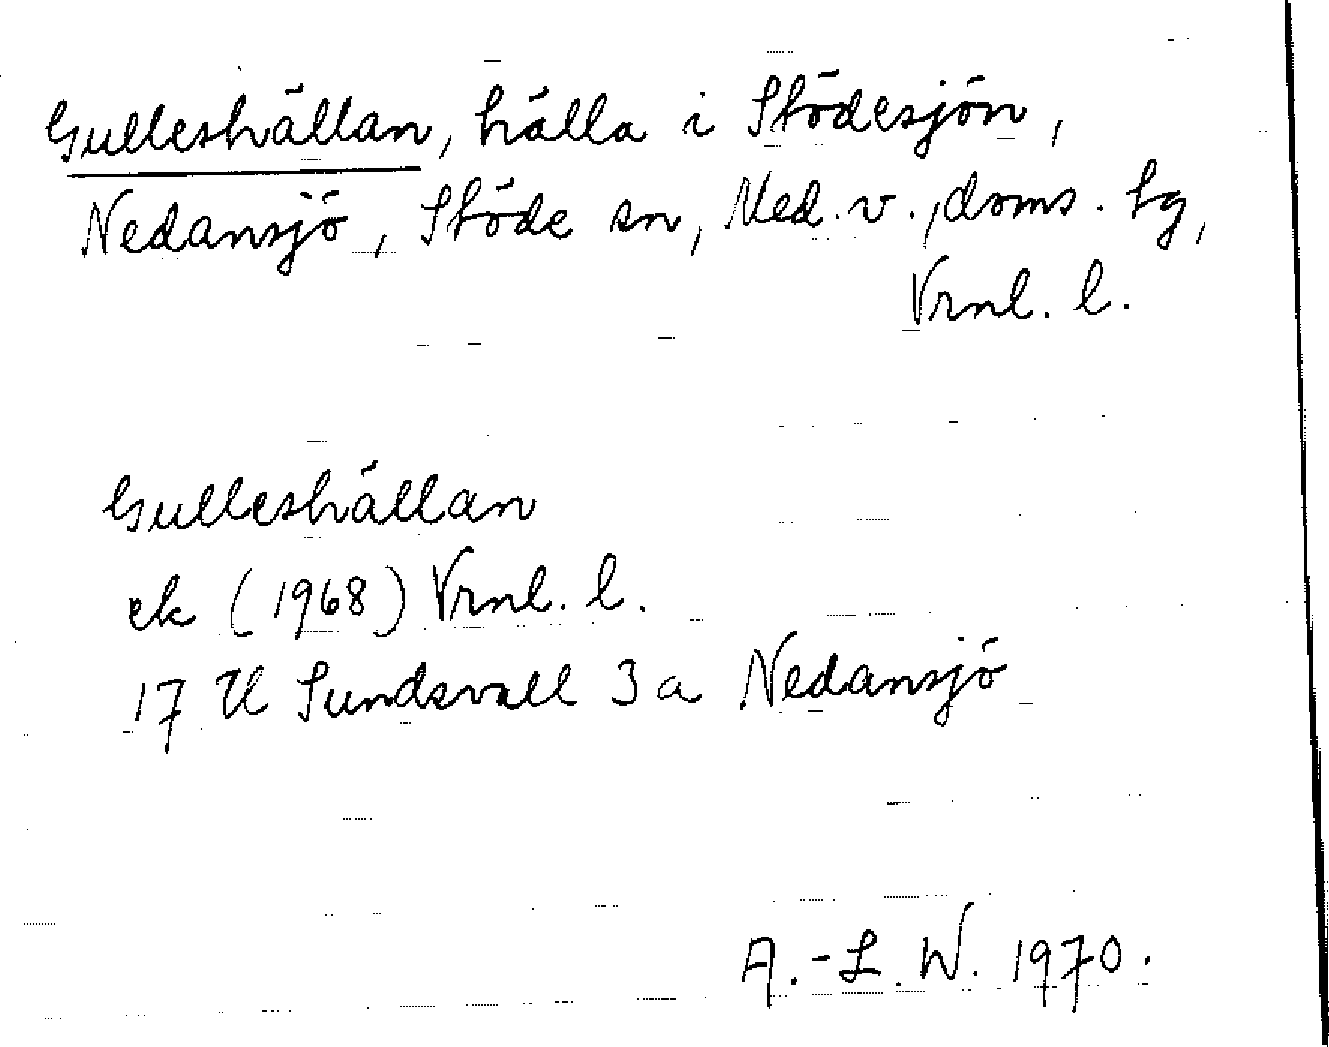 Gulleshällan, hälla i Stödesjön,
Nedansjö, Stöde sn, Med. v., doms. tg,
Vrnl. l.
Gulleshällan
ek (1968) Vrnl. l.
17 H Sundsvall 3 a Nedansjö
A.-L. W. 1970.